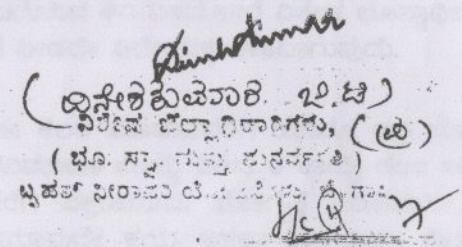 (ದಿನೇಶಕುಮಾರ. ಬಿ.ಟಿ)
ವಿಶೇಷ ಜಿಲ್ಲಾಧಿಕಾರಿಗಳು, (ಪ್ರ)
(ಭೂ. ಸ್ವಾ. ಮತ್ತು ಪುನರ್ವಸತಿ)
ಬೃಹತ್ ನೀರಾವರಿ